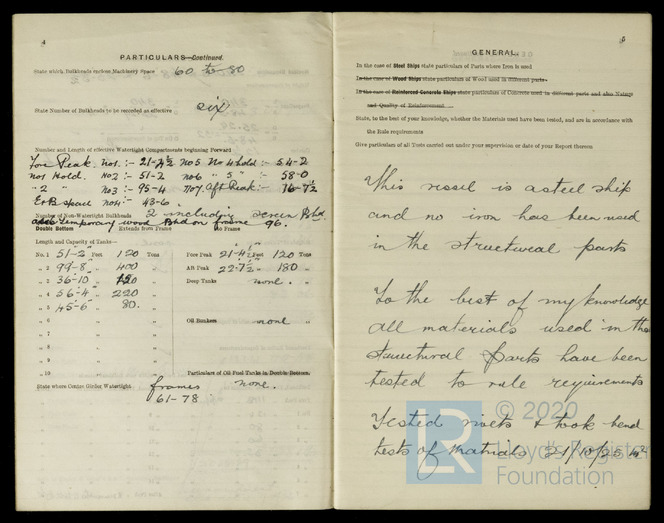 4
PARTICULARS—Continued.
State which Bulkheads enclose Machinery Space 60 to 80
State Number of Bulkheads to be recorded as effective six
Number and Length of effective Watertight Compartments beginning Forward
Fore Peak. No1 :- 21-4½ No5 No 4 hold :- 54-2
No1 Hold. No2 :- 51-2 No6 " 5 " :- 58-0
" 2 " No3 :- 95-4 No7 Aft Peak :- 16-7½
E&B space No4 :- 43-6
Number of Non-Watertight Bulkheads 2 including screen Bhd
temporary wood Bhd on frame 96.
Double Bottom Extends from Frame to Frame
Length and Capacity of Tanks—
No. 1 51-2" Feet 120 Tons Fore Peak 21-4½ Feet 120 Tons
" 2 99-8" " 400 " Aft Peak 22-7½ " 180 "
" 3 36-10 " 120 " Deep Tanks none. "
" 4 56-4 " 220 "
" 5 45-6 " 80. "
" 6 " " Oil Bunkers none "
" 7 " "
" 8 " "
" 9 " "
" 10 " " Particulars of Oil Fuel Tanks in Double Bottom.
State where Centre Girder Watertight frames none.
61-78
5
GENERAL.
In the case of Steel Ships state particulars of Parts where Iron is used
In the case of Wood Ships state particulars of Wood used in different parts.
In the case of Reinforced Concrete Ships state particulars of Concrete used in different parts and also Nature
and Quality of Reinforcement
State, to the best of your knowledge, whether the Materials used have been tested, and are in accordance with
the Rule requirements
Give particulars of all Tests carried out under your supervision or date of your Report thereon
This vessel is a steel ship
and no iron has been used
in the structural parts
To the best of my knowledge
all materials used in the
structural parts have been
tested to rule requirements
Tested rivets & took bend
tests of materials 21/10/25
LR
© 2020
Lloyd's Register
Foundation